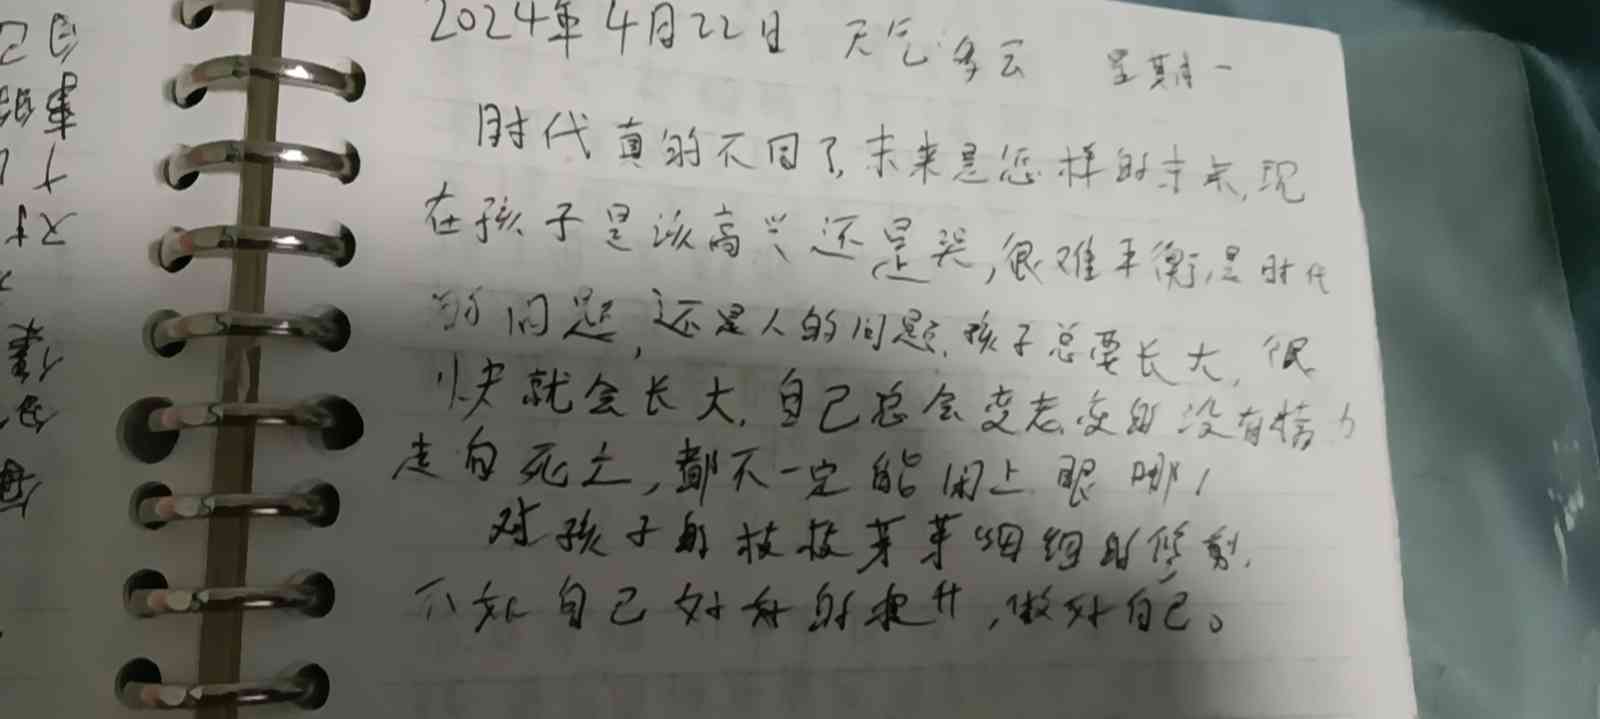 2024年4月22日 天气多云 星期一
时代真的不同了,未来是怎样的未来,现
在孩子是该高兴还是哭,很难平衡,是时代
的问题,还是人的问题.孩子总要长大,很
快就会长大.自己总会变老,变的没有精力
走向死亡,都不一定能闭上眼哪!
对孩子的枝枝芽芽细细的修剪,
不如自己好好的提升,做好自己。
自己
事
对